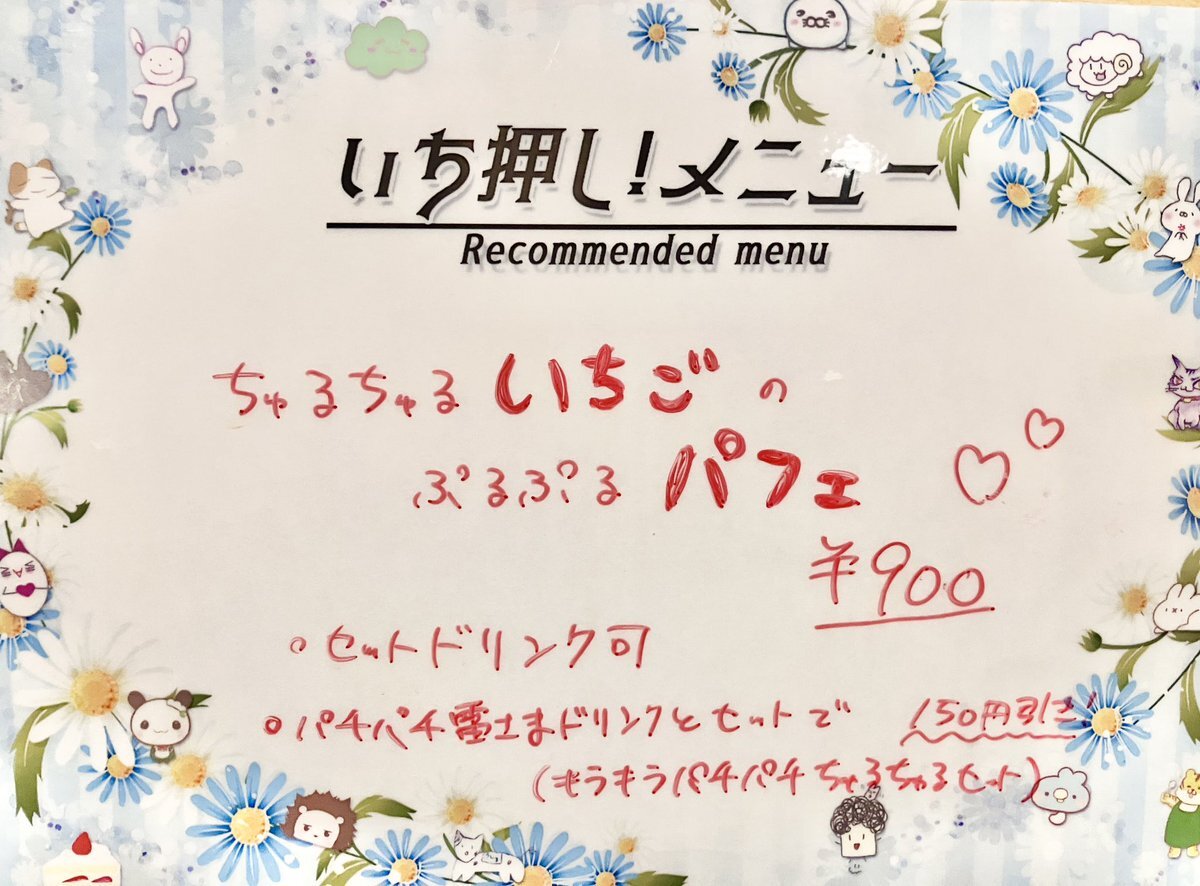 いち押し!メニュー
Recommended menu
ちゅるちゅるいちごの
ぷるぷるパフェ
¥900
・セットドリンク可
・パチパチ雷土まドリンクとセットで 150円引き!
(キラキラパチパチちゅるちゅるセット)